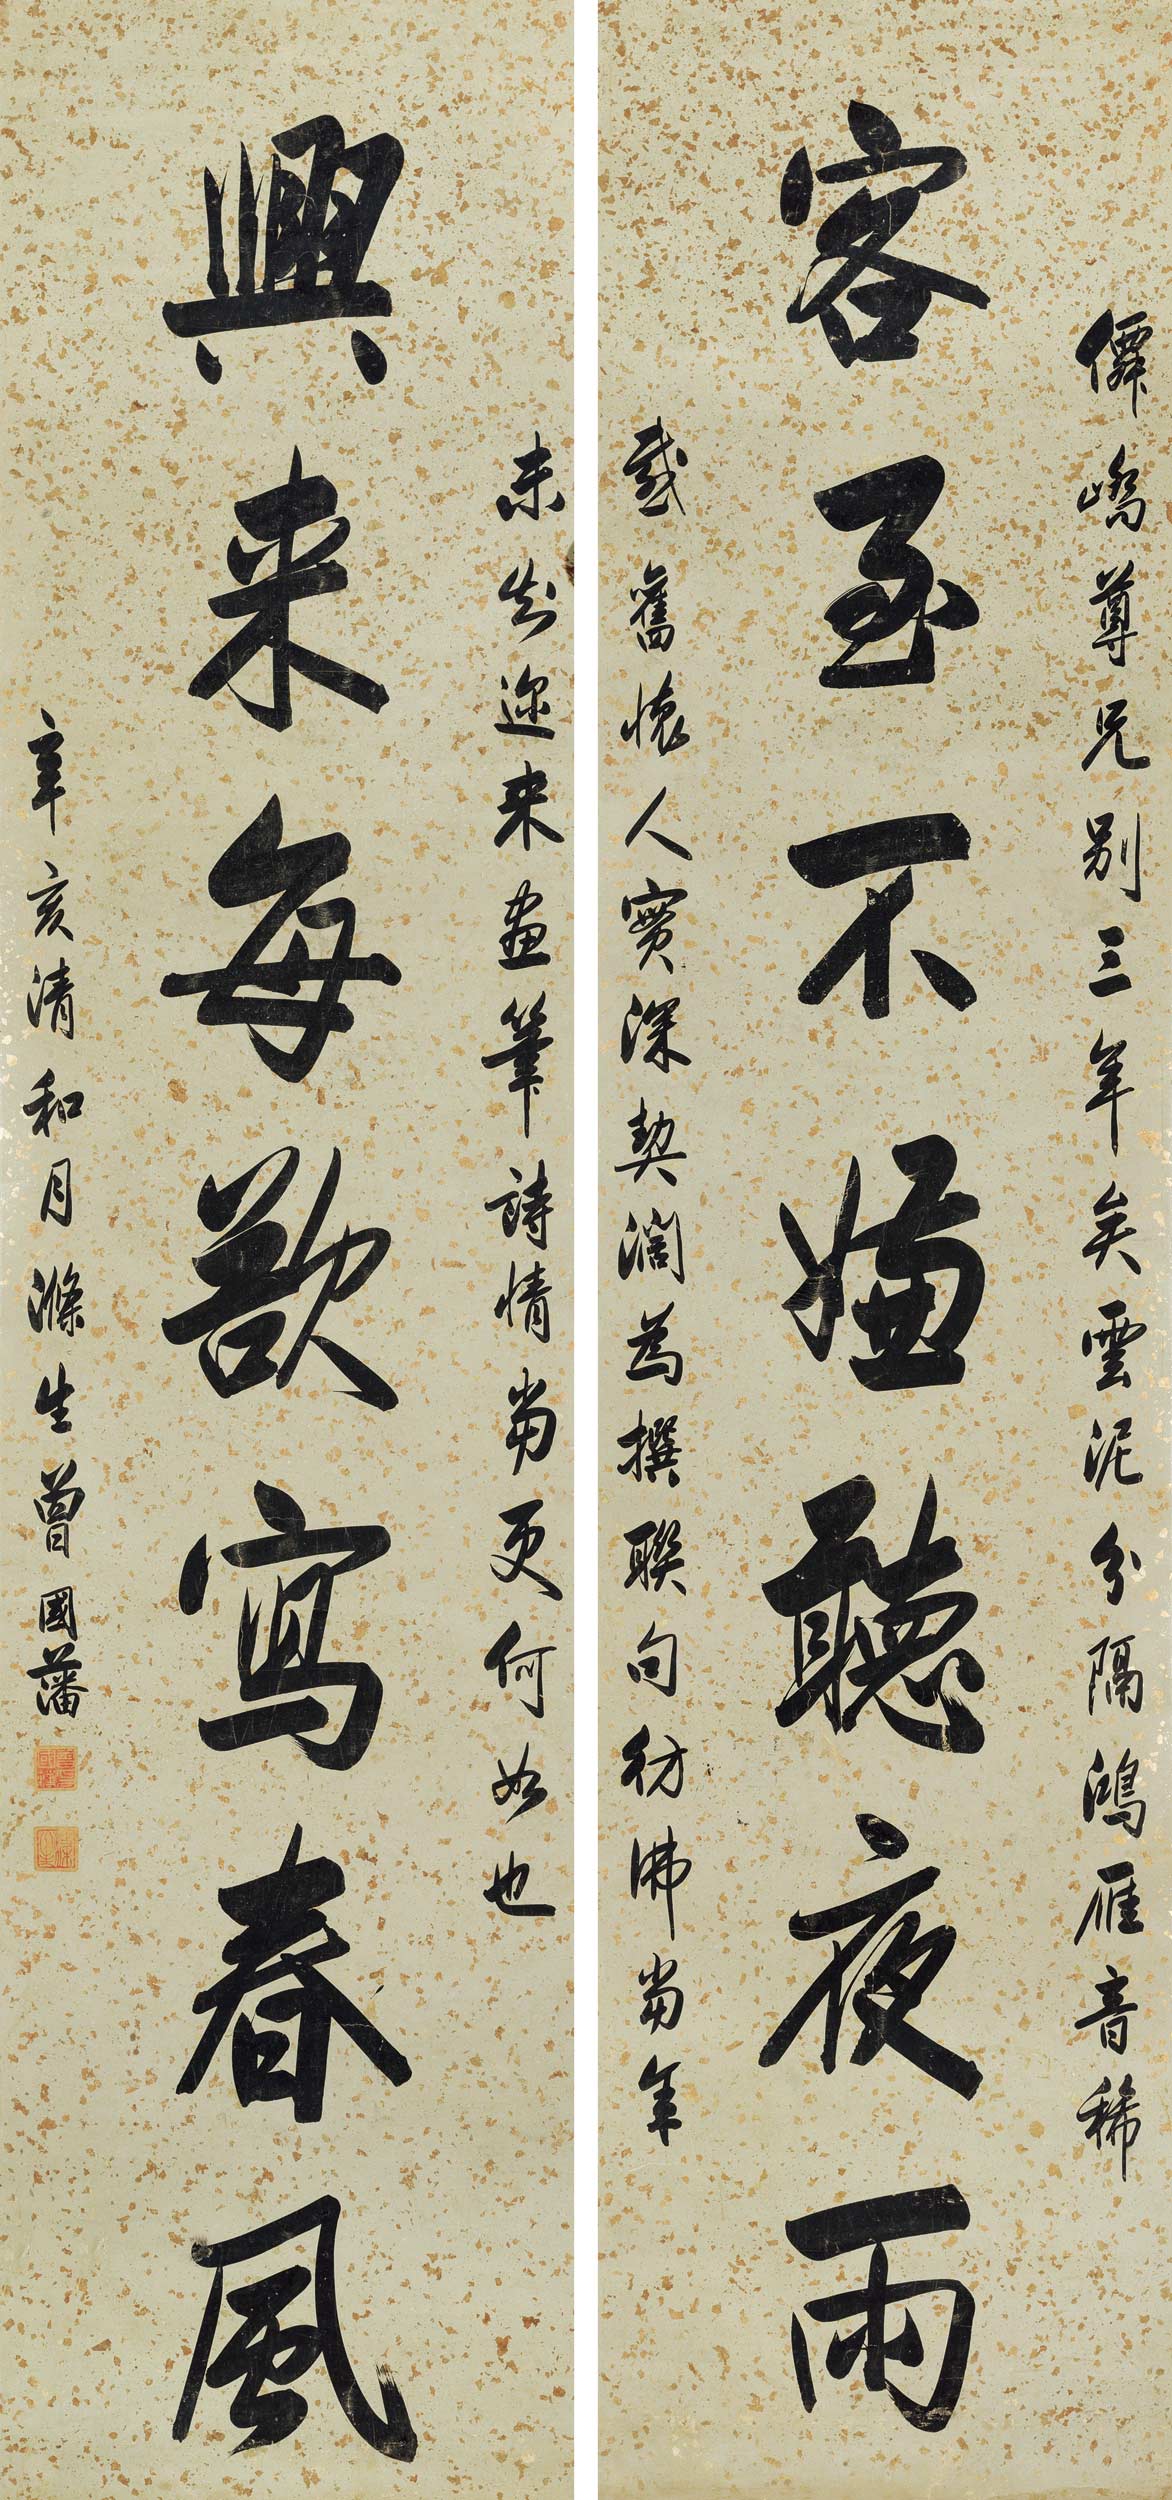 僊嶠尊兄別三年矣雲泥分隔鴻雁音稀
客至不嫌聽夜雨
感舊懷人實深契濶為撰聯句彷彿當年
未知迩来畫筆詩情當更何如也
興来每欲寫春風
辛亥清和月滌生曾國藩